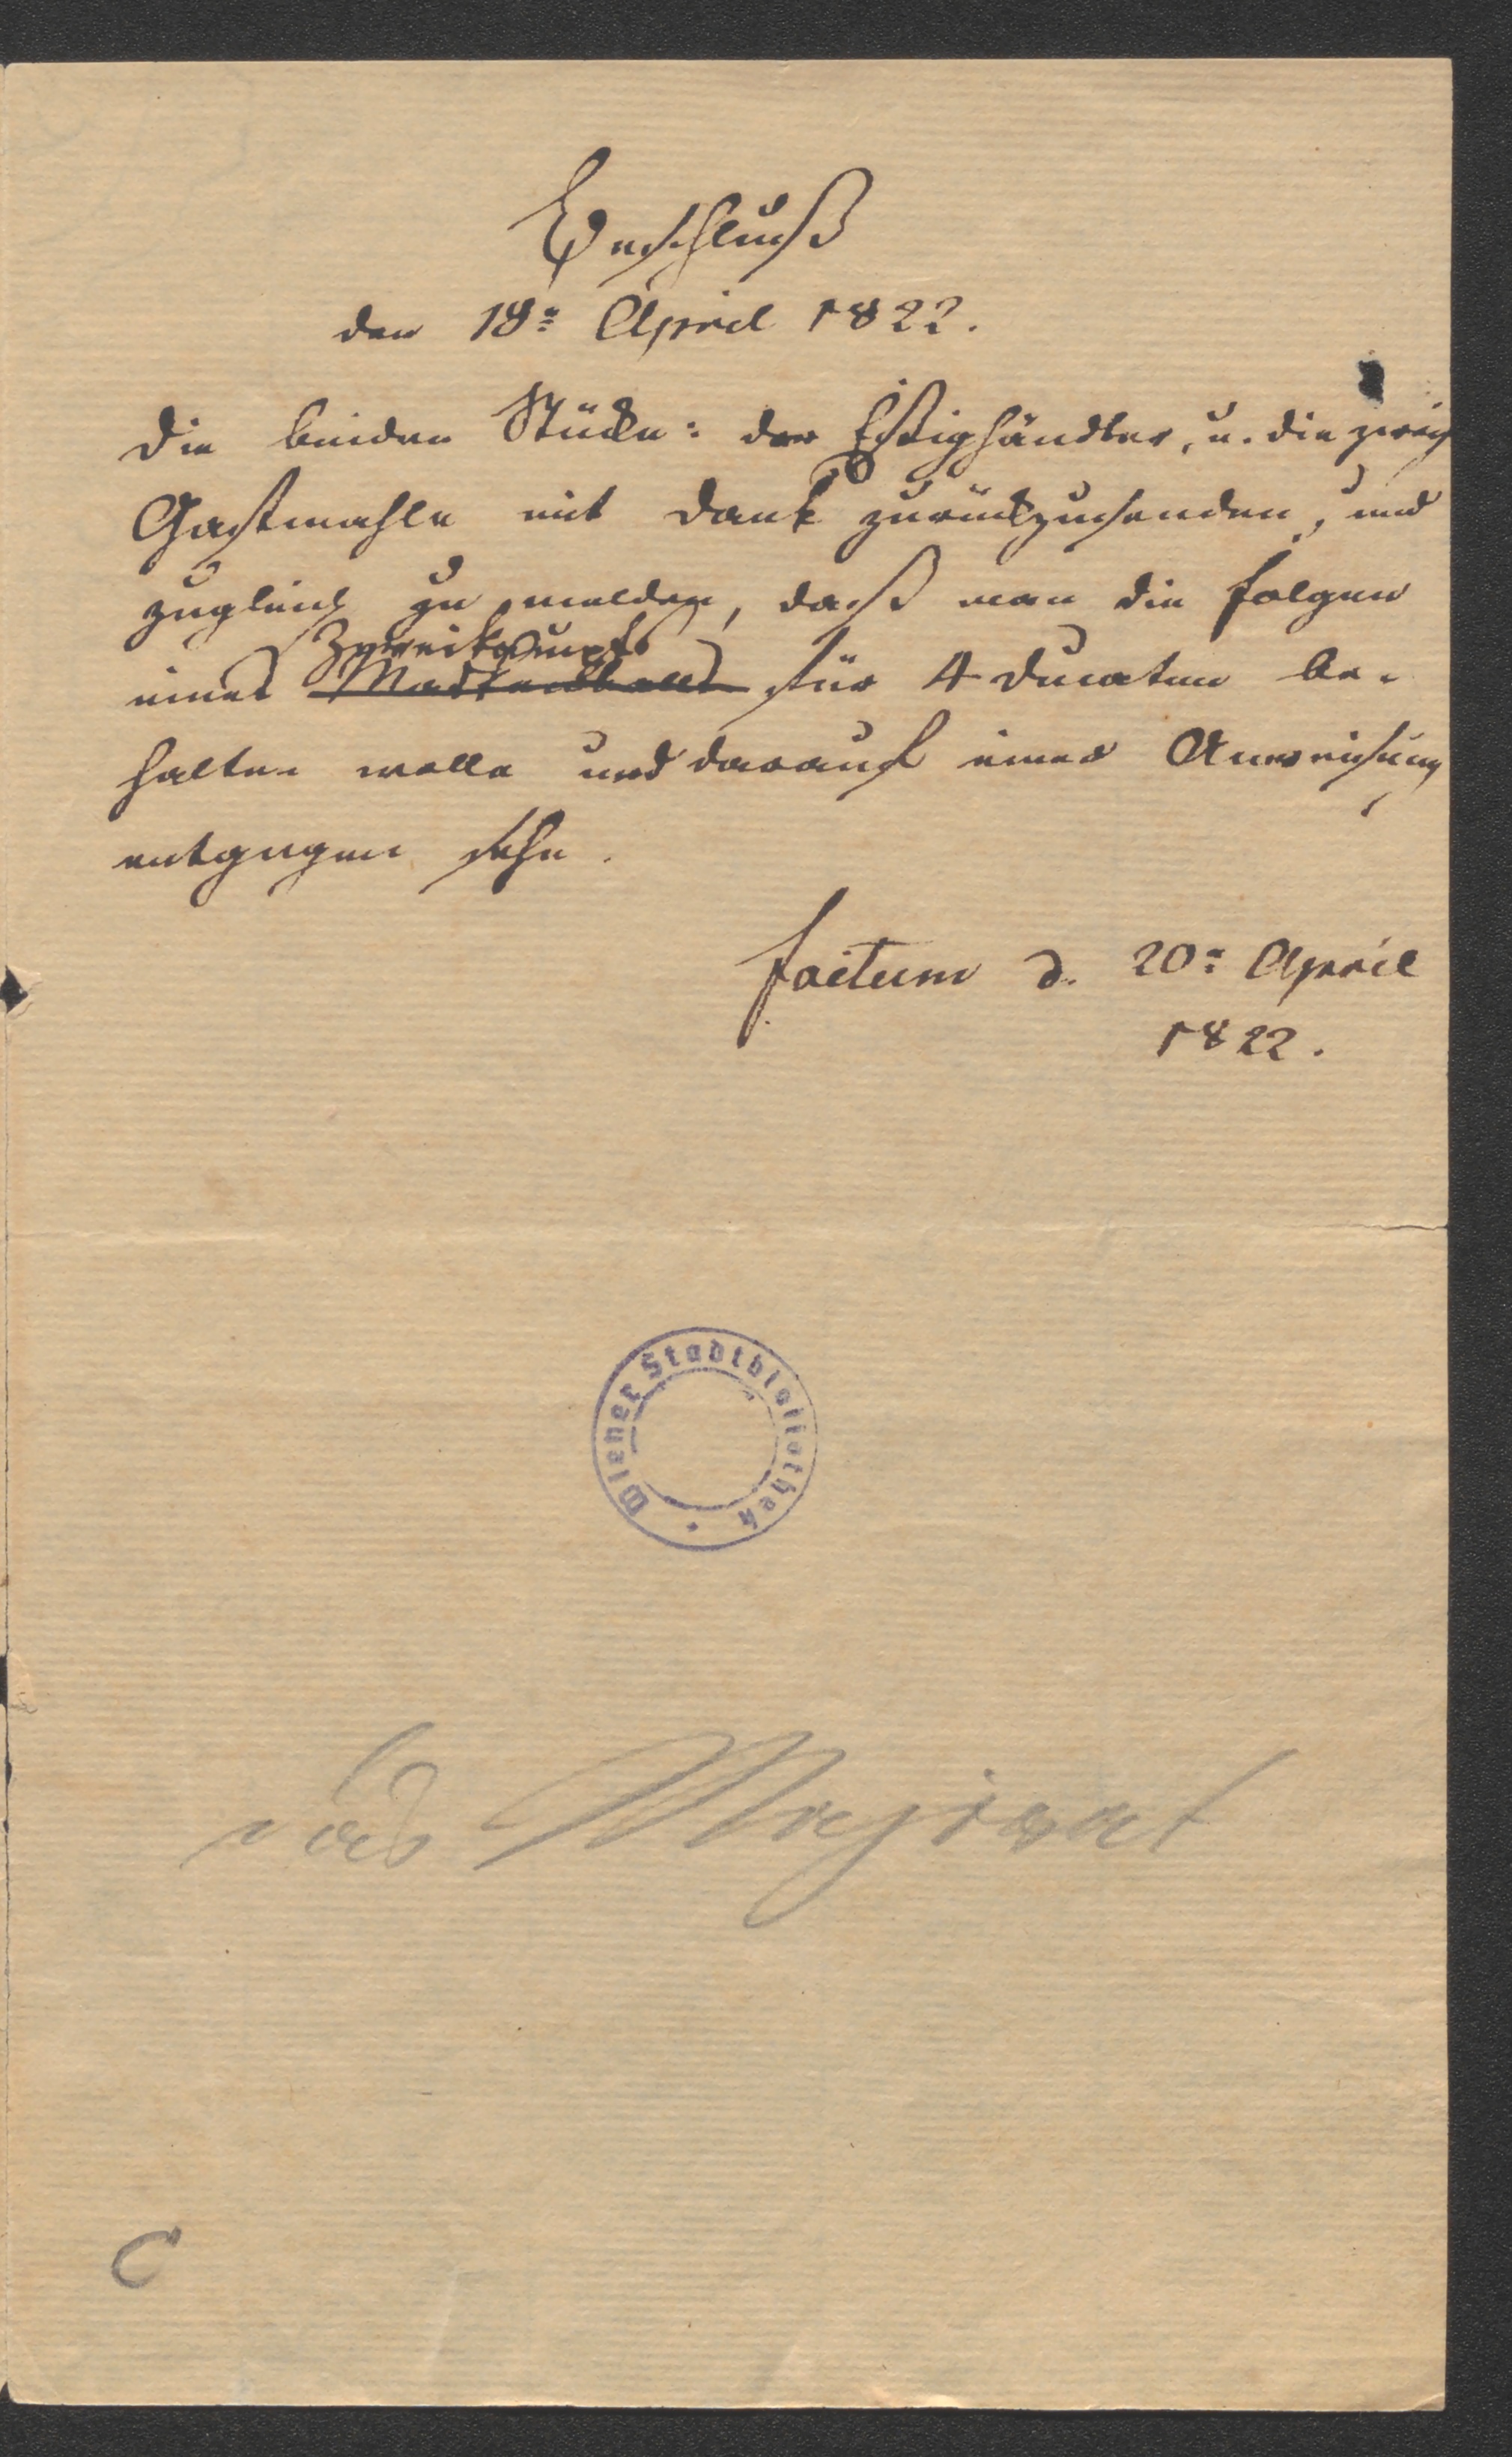 Beschluß
den 18: April 1822.
Die beiden Stücke: der Essighändler, u. die zwei
Gastmahle mit Dank zurückzusenden, und
zugleich zu melden, daß man die Folgen
Zweikampfs
eines Maskenballs für 4 Ducaten be-
halten wolle und darauf einer Anweisung
entgegen sehe.
factum d. 20: April
1822.
Wiener Stadtbibliothek
das Majorat
C